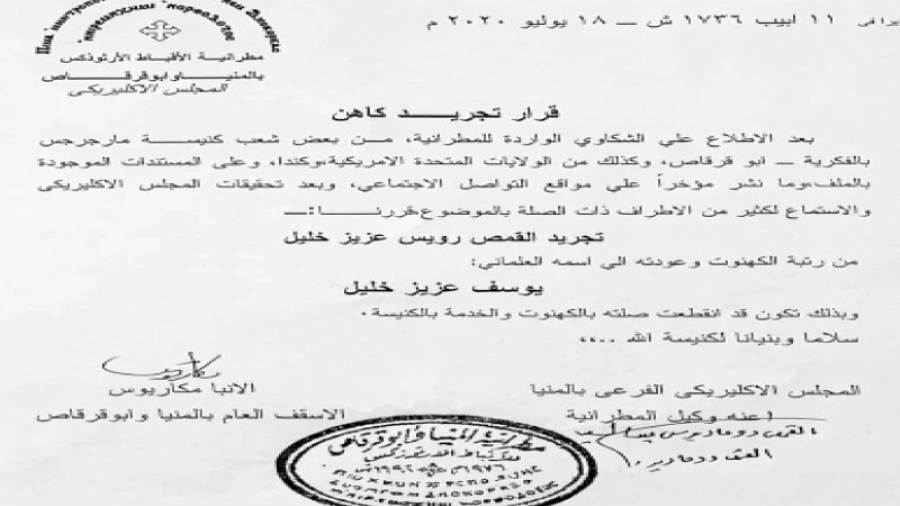 ١١ ابيب ١٧٣٦ ش ــ ١٨ يوليو ٢٠٢٠ م
مطرانية الأقباط الأرثوذكس
بالمنيا وابو قرقاص
المجلس الاكليريكى
قرار تجريد كاهن
بعد الاطلاع علي الشكاوي الواردة للمطرانية، من بعض شعب كنيسة مارجرجس
بالفكرية ــ ابو قرقاص، وكذلك من الولايات المتحدة الامريكية،وكندا، وعلى المستندات الموجودة
بالملف،وما نشر مؤخراً علي مواقع التواصل الاجتماعي، وبعد تحقيقات المجلس الاكليريكى
والاستماع لكثير من الاطراف ذات الصلة بالموضوع،قررنا:ــ
تجريد القمص رويس عزيز خليل
من رتبة الكهنوت وعودته الي اسمه العلماني:
يوسف عزيز خليل
وبذلك تكون قد انقطعت صلته بالكهنوت والخدمة بالكنيسة.
سلاما وبنيانا لكنيسة الله ..،،
مكاريوس
الانبا مكاريوس
الاسقف العام بالمنيا وابوقرقاص
المجلس الاكليريكى الفرعى بالمنيا
عنه وكيل المطرانية
القمص
مطرانية المنيا وابوقرقاص